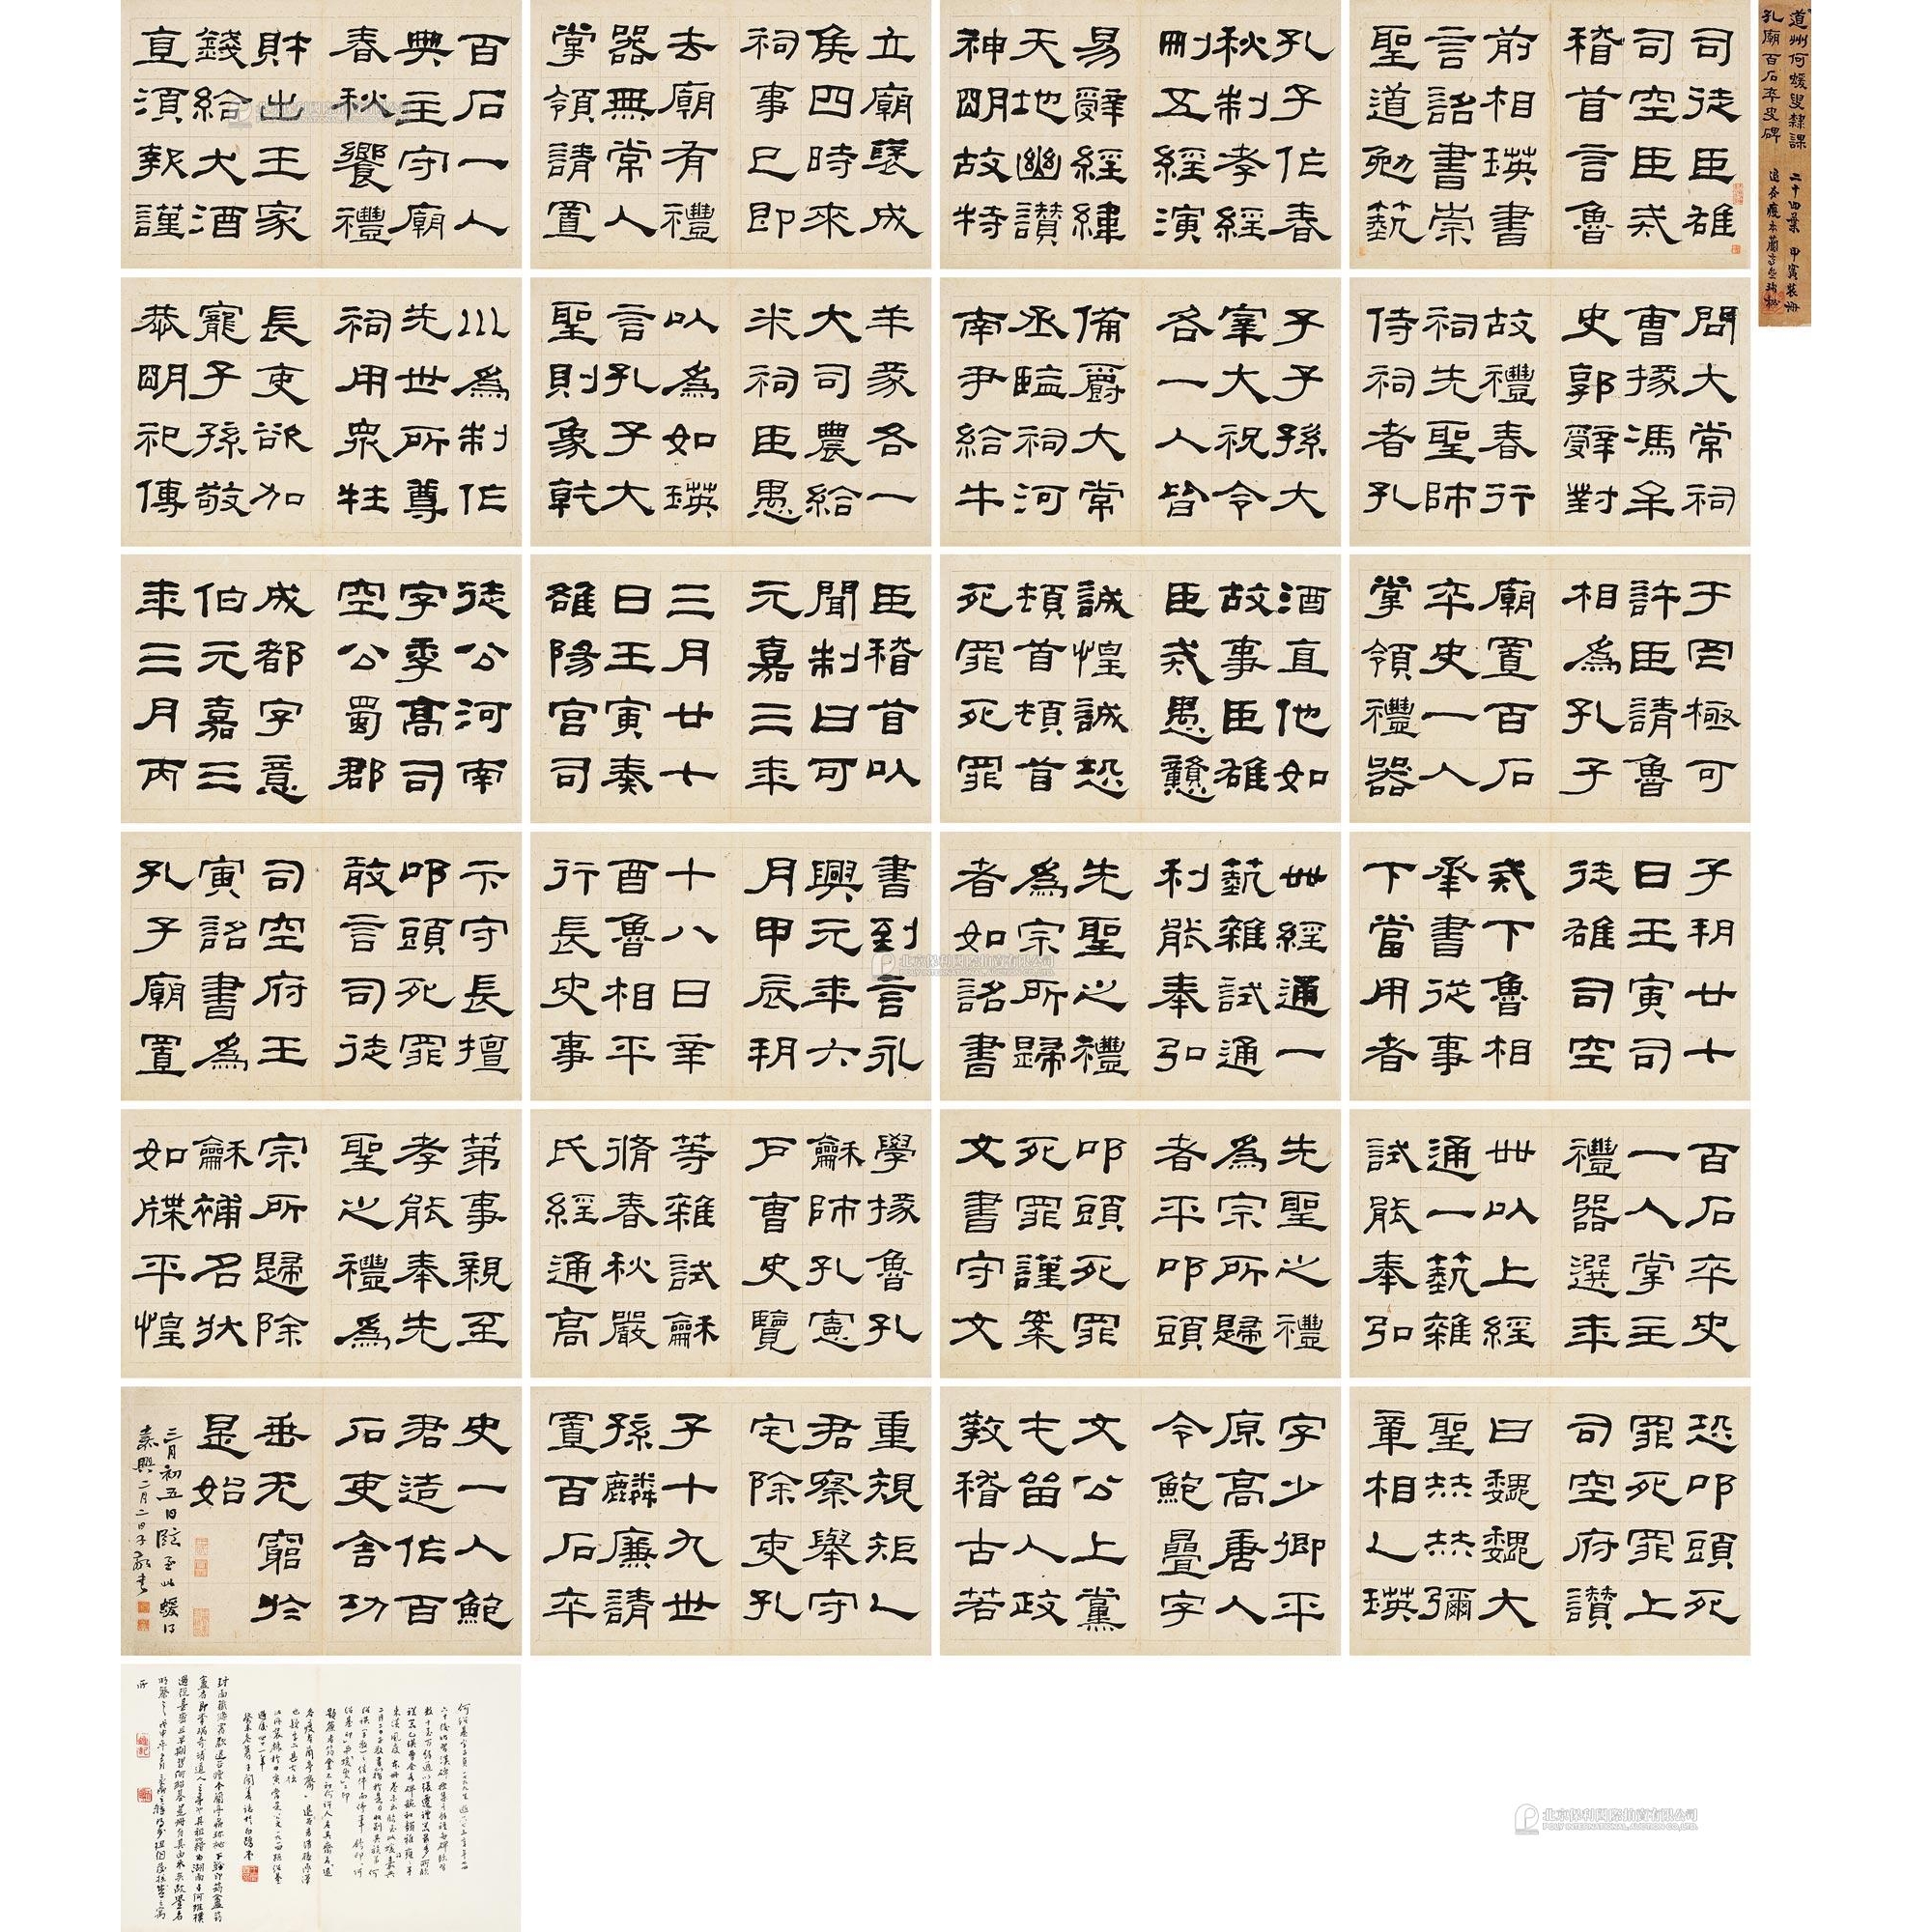 道州何蝯叟隸課
孔廟百石卒史碑
二十四葉 甲寅裝冊
司徒臣雄
司空臣戒
稽首言魯
前相瑛書
言詔書崇
聖道勉藝
孔子作春
秋制孝經
刪五經演
易辭經緯
天地幽讚
神明故特
立廟褒成
侯四時來
祠事已即
去廟有禮
器無常人
掌領請置
百石一人
典主守廟
春秋饗禮
財出王家
錢給犬酒
直須報謹
問大常祠
曹掾馮牟
史郭辭對
故禮春行
祠先聖師
侍祠者孔
子子孫大
宰大祝令
各一人皆
備爵大常
丞監祠河
南尹給牛
羊豕各一
大司農給
米祠臣愚
以為如瑛
言孔子大
聖則象乾
川為制作
先世所尊
祠用眾牲
長吏欲加
寵子孫敬
恭明祀傳
于罔極可
許臣請魯
相為孔子
廟置百石
卒史一人
掌領禮器
酒直他如
故事臣雄
臣戒愚戇
誠惶誠恐
頓首頓首
死罪死罪
臣稽首以
聞制曰可
元嘉三年
三月廿七
日壬寅奏
雒陽宮司
徒公河南
字季高司
空公蜀郡
成都字意
伯元嘉三
年三月丙
子朔廿七
日壬寅司
徒雄司空
戒下魯相
承書從事
下當用者
卌經通一
藝雜試通
利能奉弘
先聖之禮
為宗所歸
者如詔書
書到言永
興元年六
月甲辰朔
十八日辛
酉魯相平
行長史事
卞守長擅
叩頭死罪
敢言司徒
司空府壬
寅詔書為
孔子廟置
百石卒史
一人掌主
禮器選年
卌以上經
通一藝雜
試能奉弘
先聖之禮
為宗所歸
者平叩頭
叩頭死罪
死罪謹案
文書守文
學掾魯孔
龢師孔憲
戶曹史覽
等雜試龢
脩春秋嚴
氏經通高
第事親至
孝能奉先
聖之禮為
宗所歸除
龢補名狀
如牒平惶
恐叩頭死
罪死罪上
司空府讚
曰巍巍大
聖赫赫彌
章相乙瑛
字少卿平
原高唐人
令鮑疊字
文公上黨
屯留人政
教稽古若
重規矩乙
君察舉守
宅除吏孔
子十九世
孫麟廉請
置百石卒
史一人鮑
君造作百
石吏舍功
垂无窮於
是始
三月初五日臨至此 蝯记
嘉興二月二日子敬書
北京保利國際拍賣有限公司
POLY INTERNATIONAL AUCTION CO.,LTD.